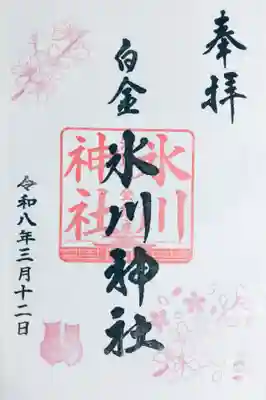 奉拝
白金
氷川神社
令和八年三月十二日
氷川
神社